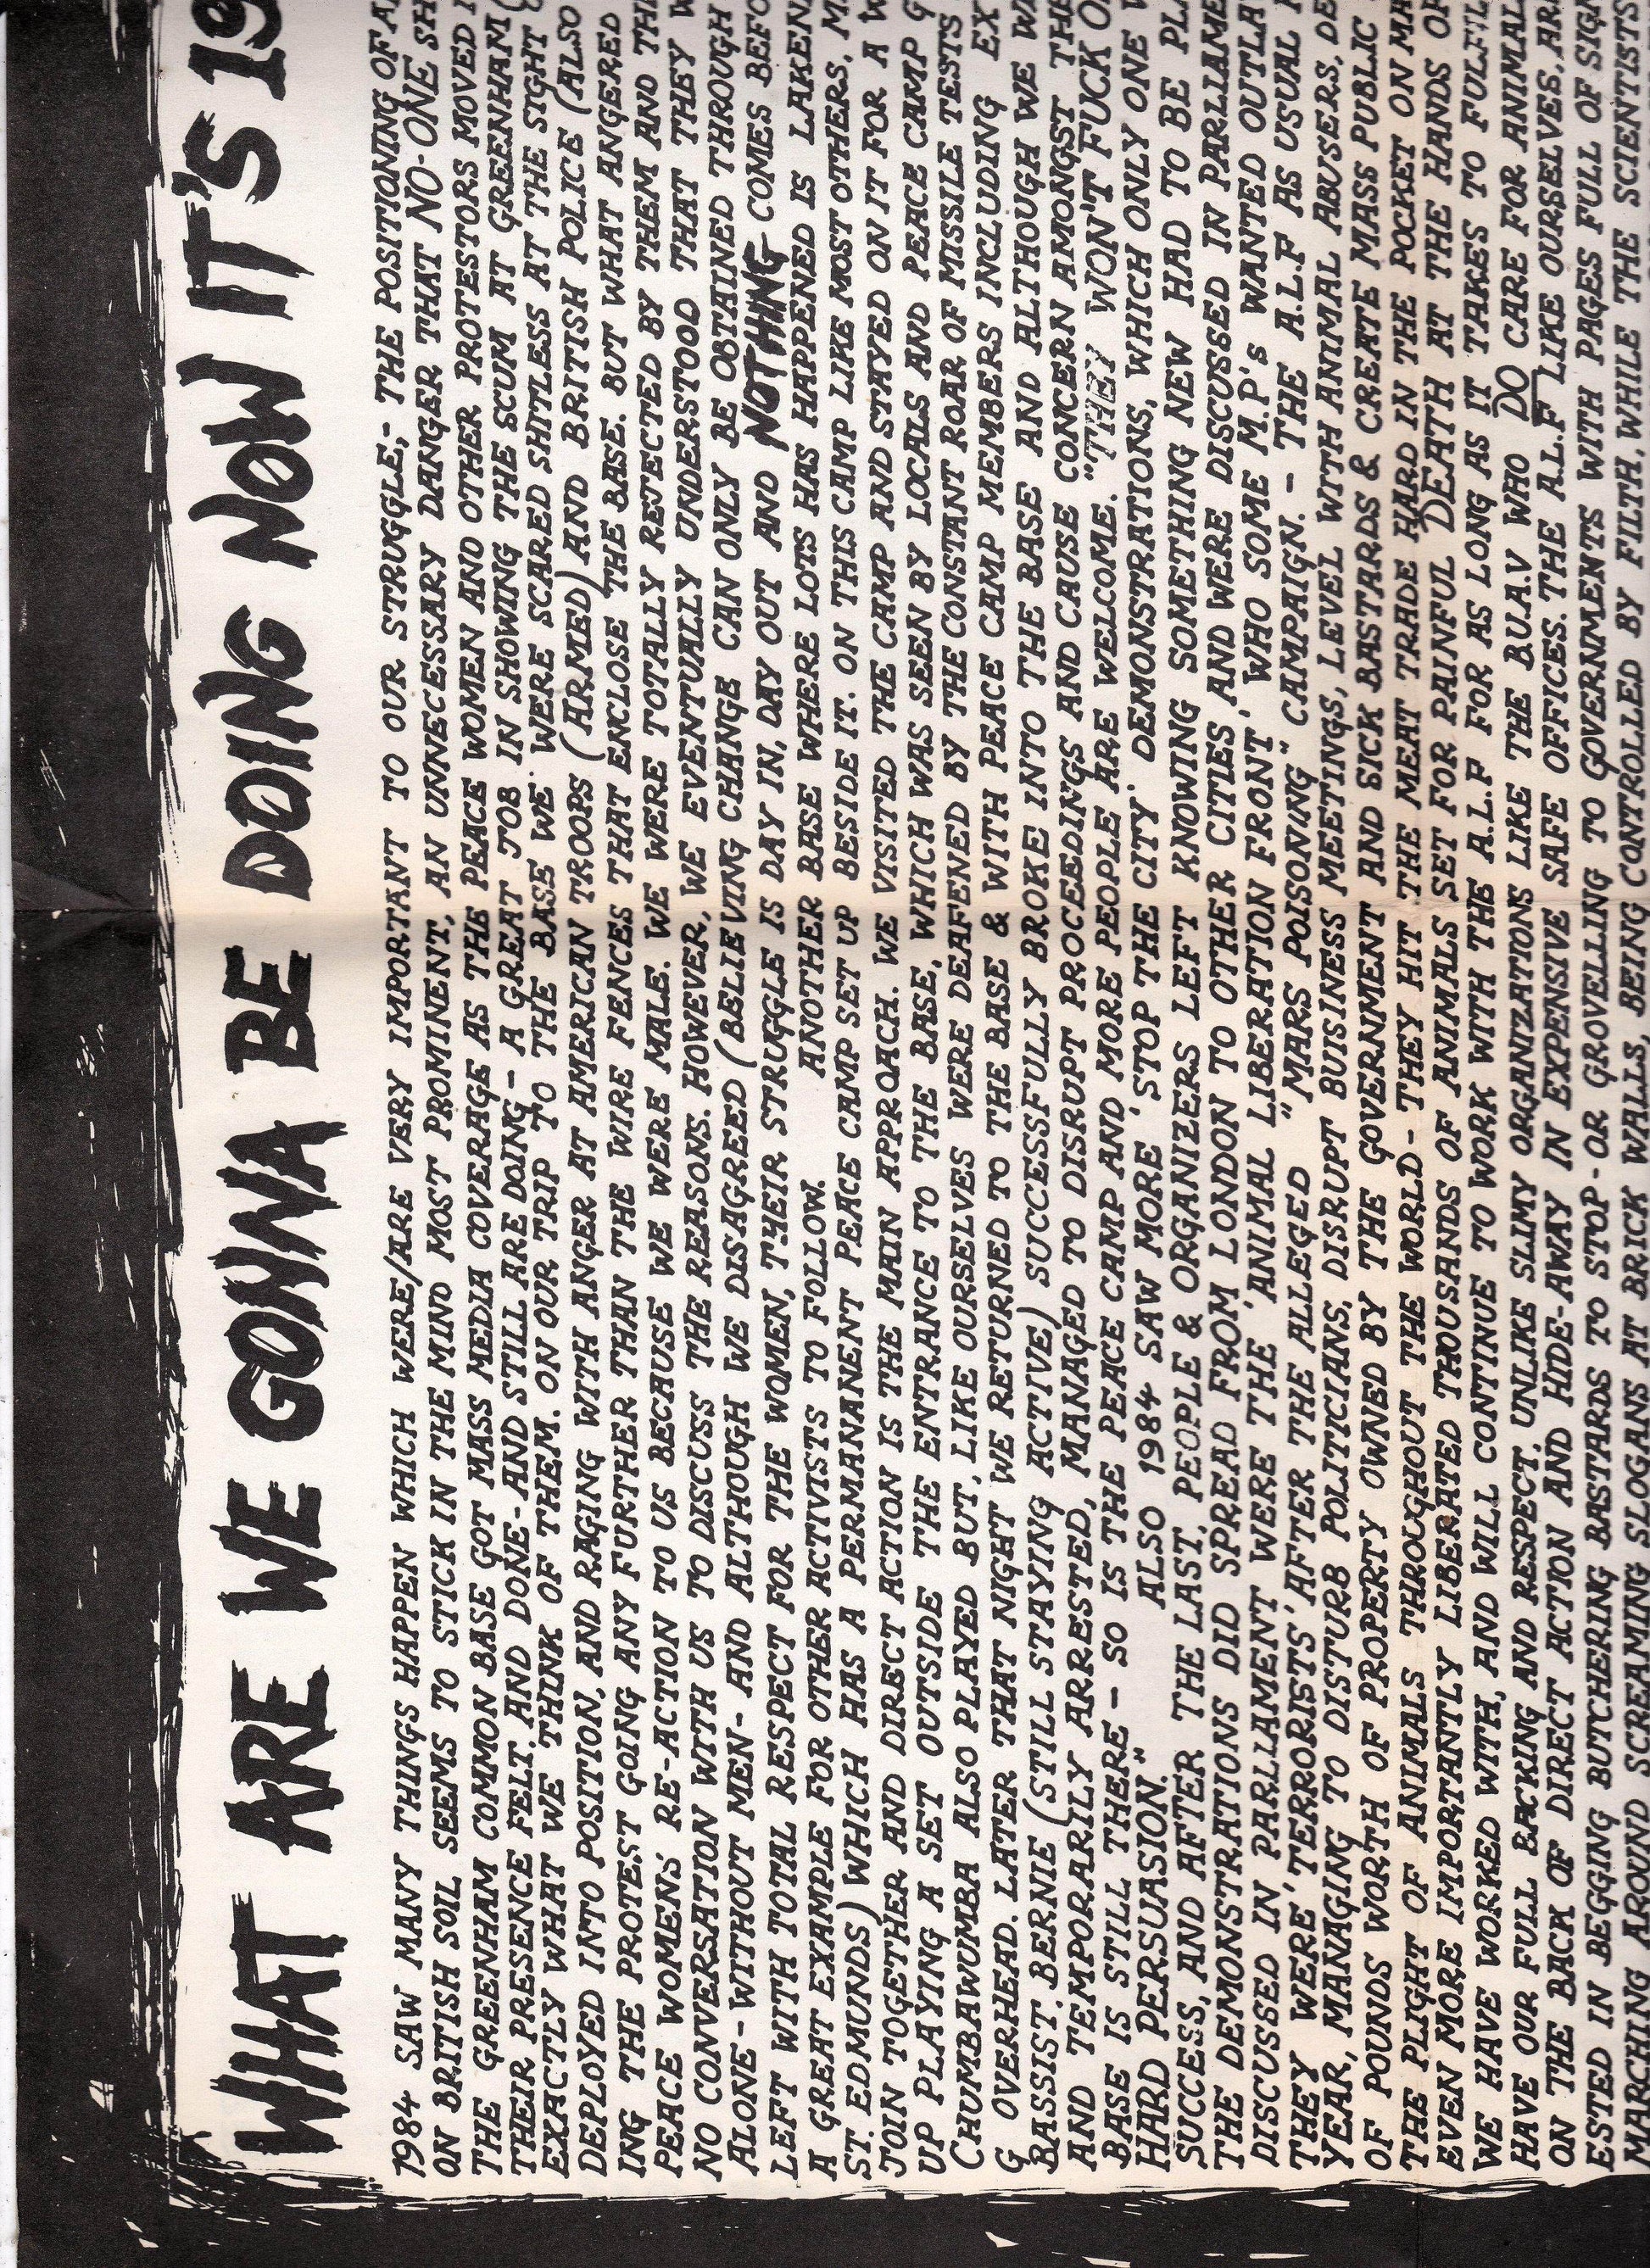 WHAT ARE WE GONNA BE DOING NOW IT'S 19
1984 SAW MANY THINGS HAPPEN WHICH WERE/ARE VERY IMPORTANT TO OUR STRUGGLE;- THE POSITIONING OF
ON BRITISH SOIL SEEMS TO STICK IN THE MIND MOST PROMINENT, AN UNNECESSARY DANGER THAT NO-ONE SH
THE GREENHAM COMMON BASE GOT MASS MEDIA COVERAGE AS THE PEACE WOMEN AND OTHER PROTESTORS MOVED
THEIR PRESENCE FELT, AND DONE-AND STILL ARE DOING - A GREAT JOB IN SHOWING THE SCUM AT GREENHAM (
EXACTLY WHAT WE THINK OF THEM. ON OUR TRIP TO THE BASE WE WERE SCARED SHITLESS AT THE SIGHT
DEPLOYED INTO POSITION, AND RAGING WITH ANGER AT AMERICAN TROOPS (ARMED) AND BRITISH POLICE (ALSO
ING THE PROTEST GOING ANY FURTHER THAN THE WIRE FENCES THAT ENCLOSE THE BASE. BUT WHAT ANGERED
PEACE WOMENS' RE-ACTION TO US BECAUSE WE WERE MALE. WE WERE TOTALLY REJECTED BY THEM AND TH
NO CONVERSATION WITH US TO DISCUSS THE REASONS. HOWEVER, WE EVENTUALLY UNDERSTOOD THAT THEY W
ALONE - WITHOUT MEN - AND ALTHOUGH WE DISAGREED (BELIEVING CHANGE CAN ONLY BE OBTAINED THROUGH
LEFT WITH TOTAL RESPECT FOR THE WOMEN, THEIR STRUGGLE IS DAY IN, DAY OUT AND NOTHING COMES BEFO
A GREAT EXAMPLE FOR OTHER ACTIVISTS TO FOLLOW. ANOTHER BASE WHERE LOTS HAS HAPPENED IS LAKEN
ST. EDMUNDS) WHICH HAS A PERMANANENT PEACE CAMP SET UP BESIDE IT. ON THIS CAMP LIKE MOST OTHERS, M
JOIN TOGETHER AND DIRECT ACTION IS THE MAIN APPROACH. WE VISITED THE CAMP AND STAYED ON IT FOR A W
UP PLAYING A SET OUTSIDE THE ENTRANCE TO THE BASE, WHICH WAS SEEN BY LOCALS AND PEACE CAMP G
CHUMBAWUMBA ALSO PLAYED BUT, LIKE OURSELVES WERE DEAFENED BY THE CONSTANT ROAR OF MISSILE TESTS
G OVERHEAD. LATER THAT NIGHT WE RETURNED TO THE BASE & WITH PEACE CAMP MEMBERS INCLUDING EX
BASSIST. BERNIE (STILL STAYING ACTIVE) SUCCESSFULLY BROKE INTO THE BASE AND ALTHOUGH WE W
AND TEMPORARILY ARRESTED, MANAGED TO DISRUPT PROCEEDINGS AND CAUSE CONCERN AMONGST THE
BASE IS STILL THERE - SO IS THE PEACE CAMP AND MORE PEOPLE ARE WELCOME. "THEY WON'T FUCK O
HARD PERSUASION." ALSO 1984 SAW MORE 'STOP THE CITY' DEMONSTRATIONS, WHICH ONLY ONE
SUCCESS, AND AFTER THE LAST, PEOPLE & ORGANIZERS LEFT KNOWING SOMETHING NEW HAD TO BE PL
THE DEMONSTRATIONS DID SPREAD FROM LONDON TO OTHER CITIES AND WERE DISCUSSED IN PARLIAME
DISCUSSED IN PARLIAMENT WERE THE 'ANIMAL LIBERATION FRONT', WHO SOME M.P's WANTED OUTLA
THEY WERE 'TERRORISTS' AFTER THE ALLEGED "MARS POISONING" CAMPAIGN. - THE A.L.F AS USUAL
YEAR, MANAGING TO DISTURB POLITICIANS, DISRUPT BUISINESS MEETINGS, LEVEL WITH ANIMAL ABUSERS, DE
OF POUNDS WORTH OF PROPERTY OWNED BY THE GOVERNMENT AND SICK BASTARDS & CREATE MASS PUBLIC
THE PLIGHT OF ANIMALS THROUGHOUT THE WORLD - THEY HIT THE MEAT TRADE HARD IN THE POCKET ON MA
EVEN MORE IMPORTANTLY LIBERATED THOUSANDS OF ANIMALS SET FOR PAINFUL DEATH AT THE HANDS OF
WE HAVE WORKED WITH, AND WILL CONTINUE TO WORK WITH THE A.L.F FOR AS LONG AS IT TAKES TO FULFIL
HAVE OUR FULL BACKING AND RESPECT. UNLIKE SLIMY ORGANIZATIONS LIKE THE B.U.A.V WHO DO CARE FOR ANIMAL
ON THE BACK OF DIRECT ACTION AND HIDE-AWAY IN EXPENSIVE SAFE OFFICES. THE A.L.F LIKE OURSELVES, AR
ESTED IN BEGGING BUTCHERING BASTARDS TO STOP - OR GROVELLING TO GOVERNMENTS WITH PAGES FULL OF SIGN
MARCHING AROUND SCREAMING SLOGANS AT BRICK WALLS, BEING CONTROLLED BY FILTH, WHILE THE SCIENTISTS